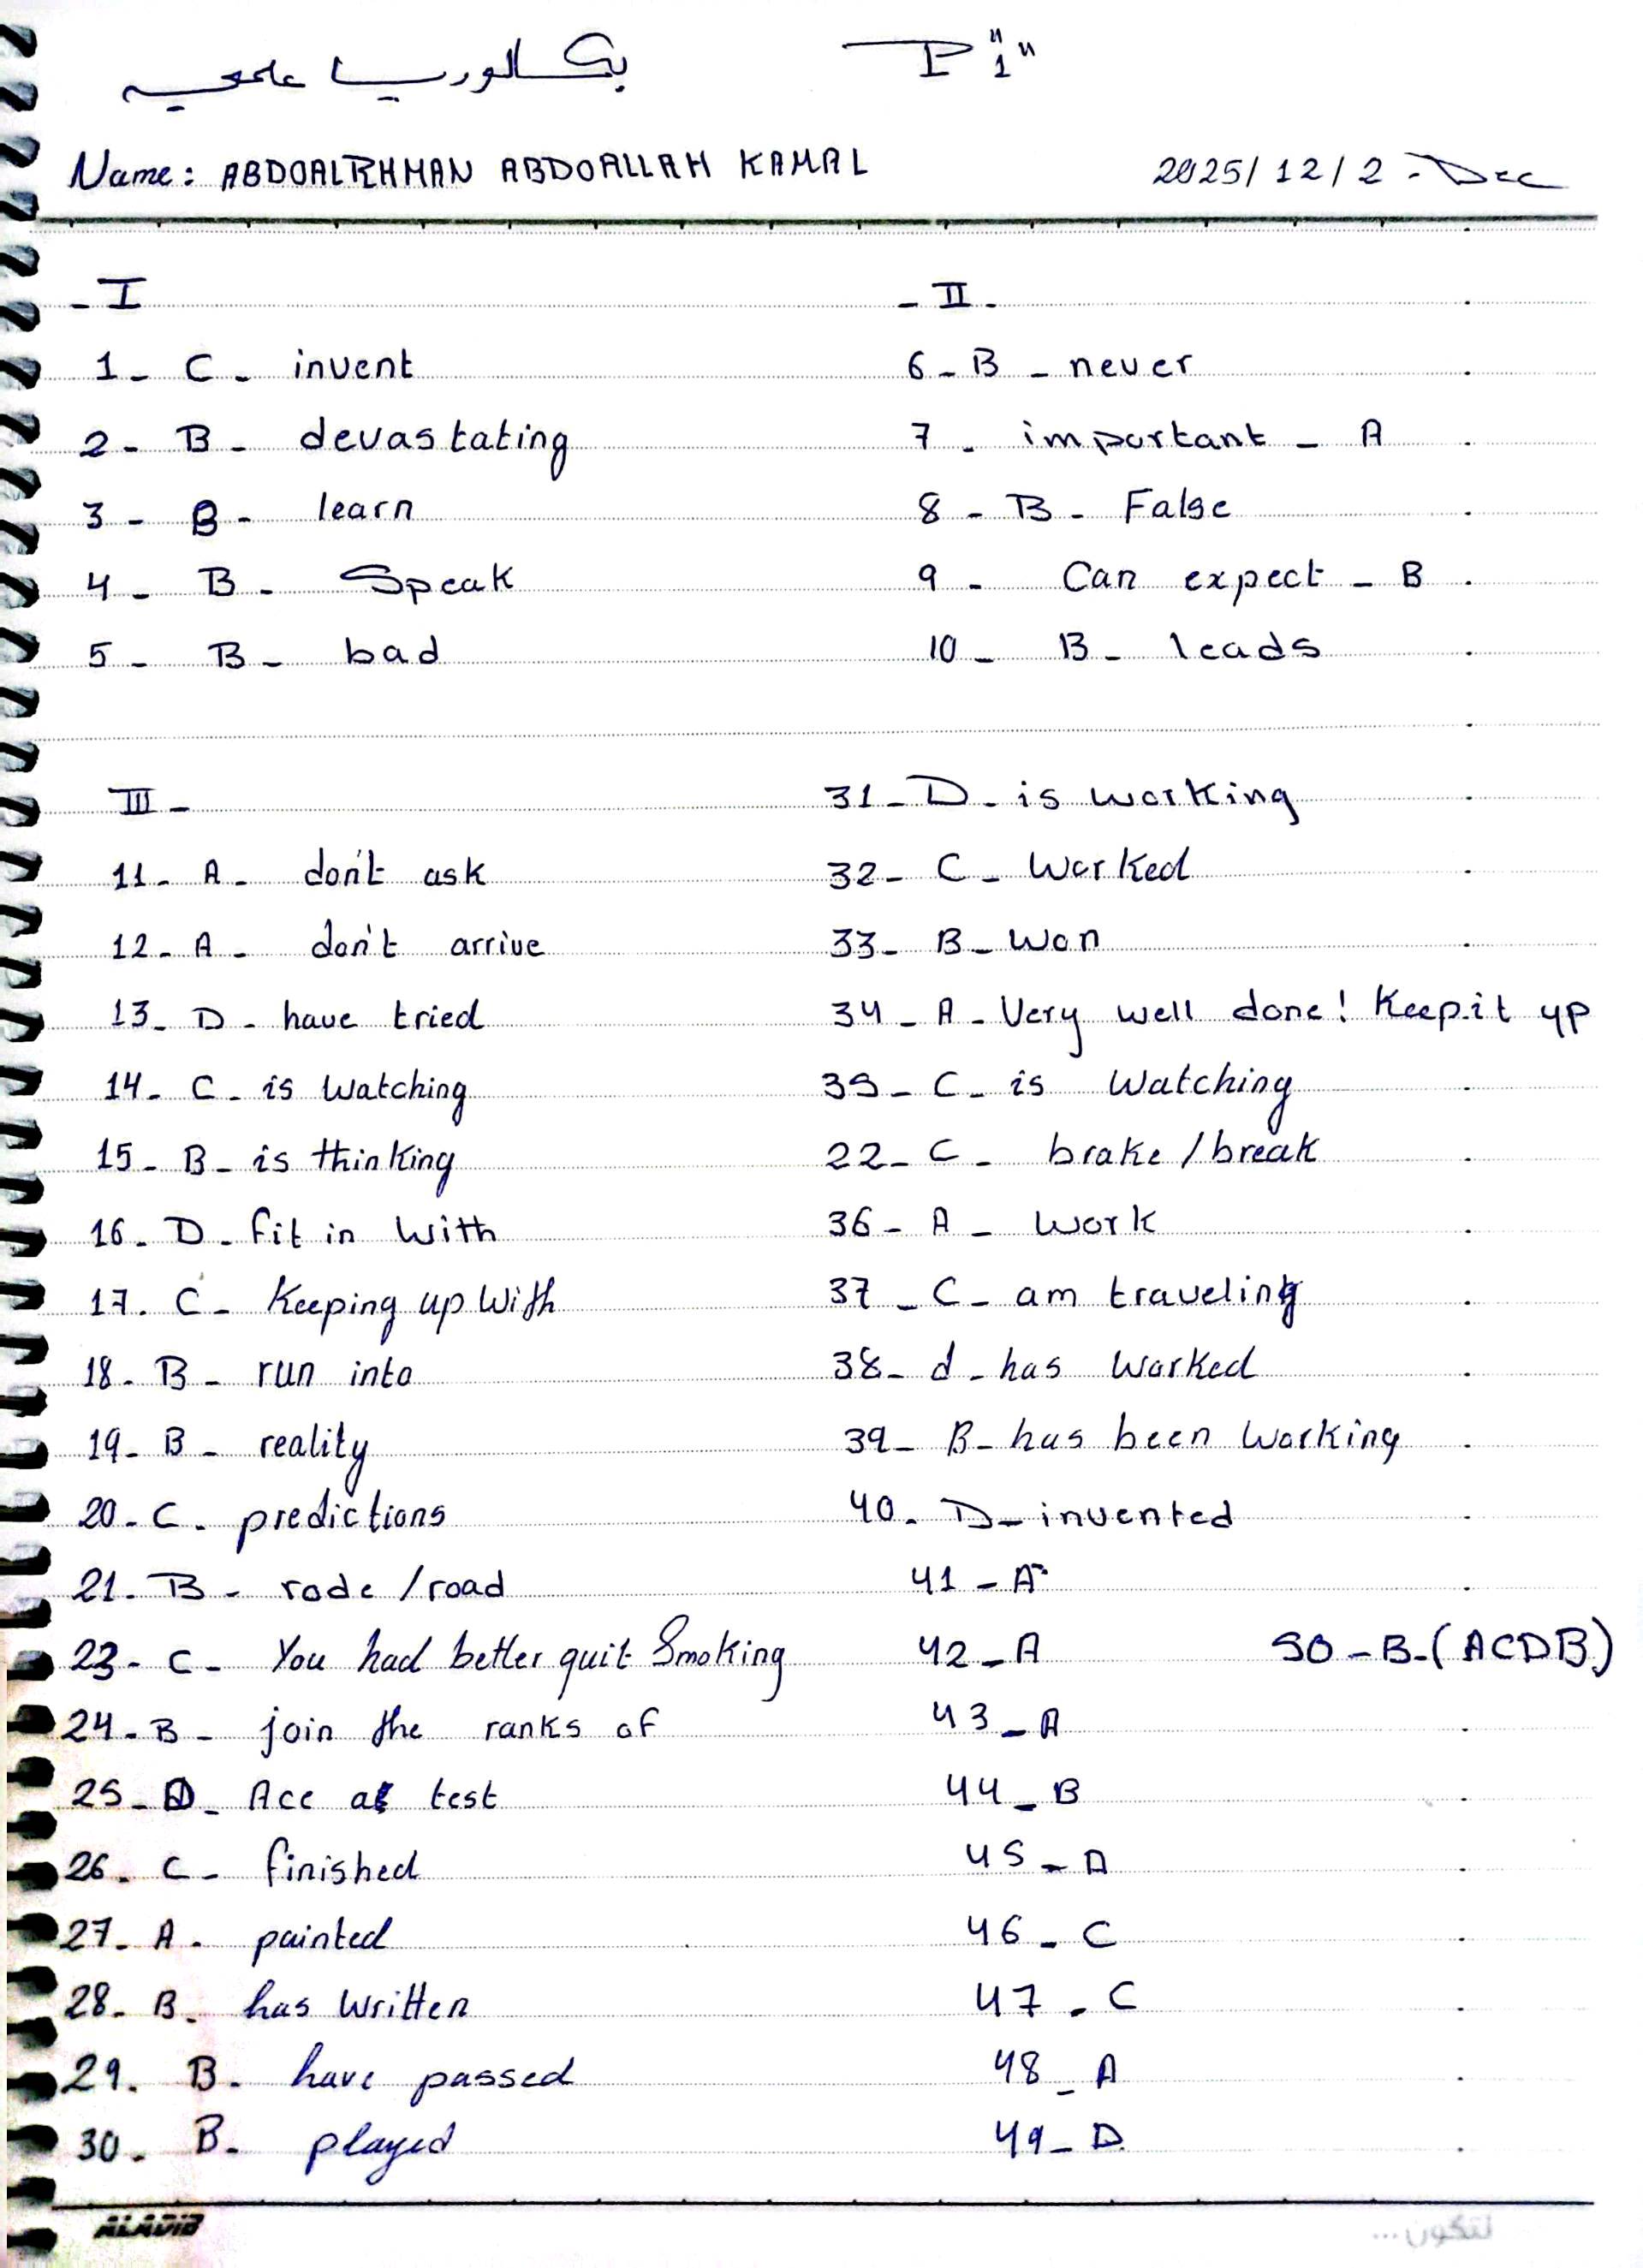 بكالوريا علمي
P "1"
Name: ABDOALRHMAN ABDOALLAH KAMAL
2025/12/2 - Dec
- I
1 - C - invent
2 - B - devastating
3 - B - learn
4 - B - Speak
5 - B - bad
- II -
6 - B - never
7 - important - A
8 - B - False
9 - Can expect - B
10 - B - leads
III -
11 - A - don't ask
12 - A - don't arrive
13 - D - have tried
14 - C - is watching
15 - B - is thinking
16 - D - fit in with
17 - C - Keeping up with
18 - B - run into
19 - B - reality
20 - C - predictions
21 - B - rode / road
23 - C - You had better quit Smoking
24 - B - join the ranks of
25 - D - Ace a test
26 - C - finished
27 - A - painted
28 - B - has written
29 - B - have passed
30 - B - played
31 - D - is working
32 - C - worked
33 - B - won
34 - A - Very well done! Keep it up
35 - C - is watching
22 - C - brake / break
36 - A - work
37 - C - am traveling
38 - d - has worked
39 - B - has been working
40 - D - invented
41 - A
42 - A
43 - A
44 - B
45 - A
46 - C
47 - C
48 - A
49 - D
50 - B - (ACDB)
ALADIB
لتكون...